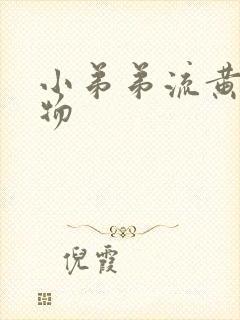 小弟弟流黄
物
倪霞